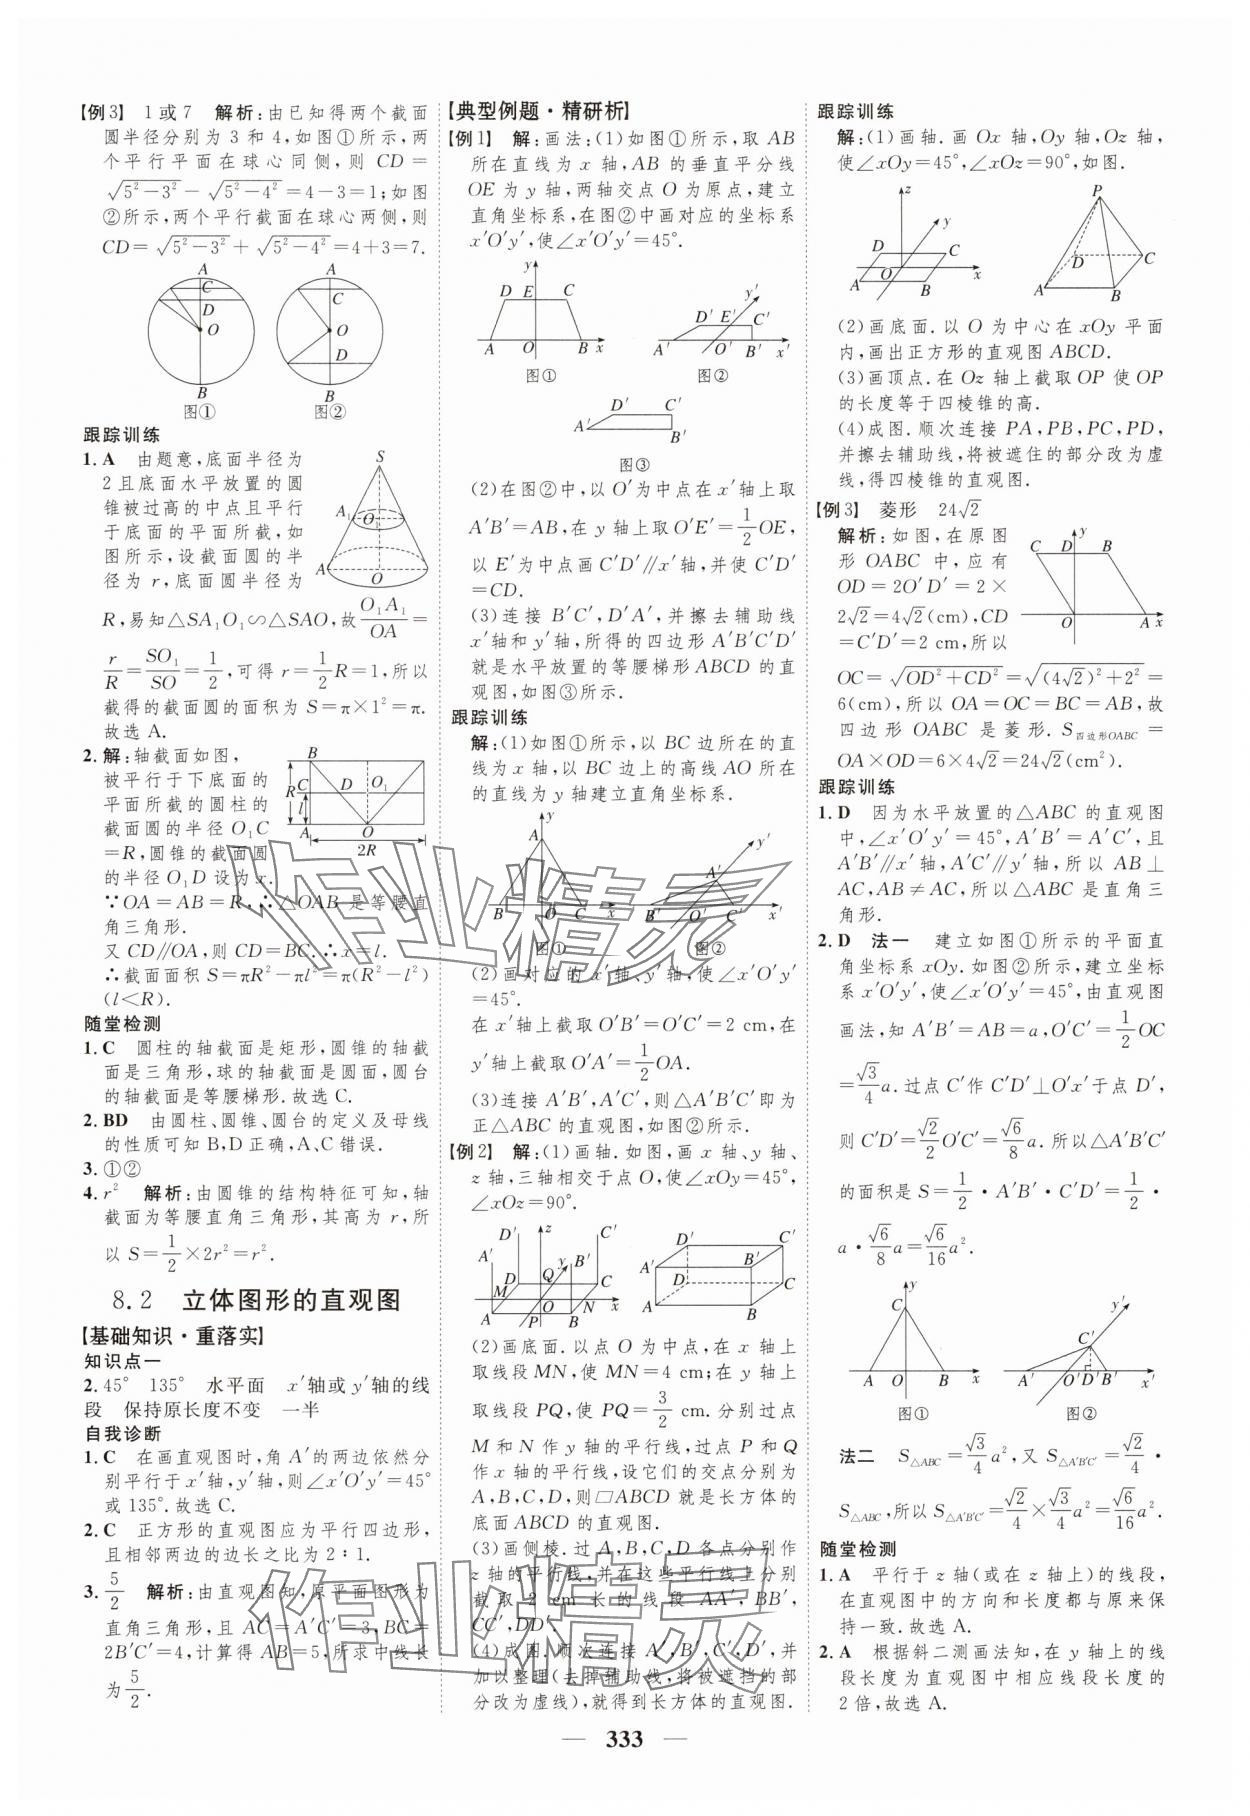 【例3】 1或7 解析:由已知得两个截面
圆半径分别为3和4,如图①所示,两
个平行平面在球心同侧,则CD=
√(5²-3²)-√(5²-4²)=4-3=1;如图
②所示,两个平行截面在球心两侧,则
CD=√(5²-3²)+√(5²-4²)=4+3=7.
A C D O B
图①
A C O D B
图②
跟踪训练
1. A 由题意,底面半径为
2且底面水平放置的圆
锥被过高的中点且平行
于底面的平面所截,如
图所示,设截面圆的半
径为r,底面圆半径为
S A₁ O₁ A O
R,易知△SA₁O₁∽△SAO,故O₁A₁/OA=
r/R=SO₁/SO=1/2,可得r=1/2R=1,所以
截得的截面圆的面积为S=π×1²=π.
故选A.
2. 解:轴截面如图,
被平行于下底面的
平面所截的圆柱的
截面圆的半径O₁C
=R,圆锥的截面圆
的半径O₁D设为x.
B R C D O₁ l A O 2R
∵OA=AB=R,∴△OAB是等腰直
角三角形.
又CD∥OA,则CD=BC.∴x=l.
∴截面面积S=πR²-πl²=π(R²-l²)
(l<R).
随堂检测
1. C 圆柱的轴截面是矩形,圆锥的轴截
面是三角形,球的轴截面是圆面,圆台
的轴截面是等腰梯形.故选C.
2. BD 由圆柱、圆锥、圆台的定义及母线
的性质可知B,D正确,A、C错误.
3. ①②
4. r² 解析:由圆锥的结构特征可知,轴
截面为等腰直角三角形,其高为r,所
以S=1/2×2r²=r².
8.2 立体图形的直观图
【基础知识·重落实】
知识点一
2. 45° 135° 水平面 x′轴或y′轴的线
段 保持原长度不变 一半
自我诊断
1. C 在画直观图时,角A′的两边依然分
别平行于x′轴,y′轴,则∠x′O′y′=45°
或135°.故选C.
2. C 正方形的直观图应为平行四边形,
且相邻两边的边长之比为2∶1.
3. 5/2 解析:由直观图知,原平面图形为
直角三角形,且AC=A′C′=3,BC=
2B′C′=4,计算得AB=5,所求中线长
为5/2.
【典型例题·精研析】
【例1】 解:画法:(1)如图①所示,取AB
所在直线为x轴,AB的垂直平分线
OE为y轴,两轴交点O为原点,建立
直角坐标系,在图②中画对应的坐标系
x′O′y′,使∠x′O′y′=45°.
y D E C A O B x
图①
y′ D′ E′ C′ A′ O′ B′ x′
图②
D′ C′ A′ B′
图③
(2)在图②中,以O′为中点在x′轴上取
A′B′=AB,在y轴上取O′E′=1/2OE,
以E′为中点画C′D′∥x′轴,并使C′D′
=CD.
(3)连接B′C′,D′A′,并擦去辅助线
x′轴和y′轴,所得的四边形A′B′C′D′
就是水平放置的等腰梯形ABCD的直
观图,如图③所示.
跟踪训练
解:(1)如图①所示,以BC边所在的直
线为x轴,以BC边上的高线AO所在
的直线为y轴建立直角坐标系.
y A B O C x
图①
y′ A′ B′ O′ C′ x′
图②
(2)画对应的x′轴、y′轴,使∠x′O′y′
=45°.
在x′轴上截取O′B′=O′C′=2 cm,在
y′轴上截取O′A′=1/2OA.
(3)连接A′B′,A′C′,则△A′B′C′即为
正△ABC的直观图,如图②所示.
【例2】 解:(1)画轴.如图,画x轴、y轴、
z轴,三轴相交于点O,使∠xOy=45°,
∠xOz=90°.
D′ z C′ A′ y B′ D Q C M O N A P B x
D′ C′ A′ B′ D C A B
(2)画底面.以点O为中点,在x轴上
取线段MN,使MN=4 cm;在y轴上
取线段PQ,使PQ=3/2 cm.分别过点
M和N作y轴的平行线,过点P和Q
作x轴的平行线,设它们的交点分别为
A,B,C,D,则▱ABCD就是长方体的
底面ABCD的直观图.
(3)画侧棱.过A,B,C,D各点分别作
z轴的平行线,并在这些平行线上分别
截取2 cm长的线段AA′,BB′,
CC′,DD′.
(4)成图.顺次连接A′,B′,C′,D′,并
加以整理(去掉辅助线,将被遮挡的部
分改为虚线),就得到长方体的直观图.
跟踪训练
解:(1)画轴.画Ox轴,Oy轴,Oz轴,
使∠xOy=45°,∠xOz=90°,如图.
z y D C O A B x
P D C A B
(2)画底面.以O为中心在xOy平面
内,画出正方形的直观图ABCD.
(3)画顶点.在Oz轴上截取OP使OP
的长度等于四棱锥的高.
(4)成图.顺次连接PA,PB,PC,PD,
并擦去辅助线,将被遮住的部分改为虚
线,得四棱锥的直观图.
【例3】 菱形 24√2
解析:如图,在原图
形OABC中,应有
OD=2O′D′=2×
2√2=4√2(cm),CD
=C′D′=2 cm,所以
C D y B O A x
OC=√(OD²+CD²)=√((4√2)²+2²)=
6(cm),所以OA=OC=BC=AB,故
四边形OABC是菱形.S四边形OABC=
OA×OD=6×4√2=24√2(cm²).
跟踪训练
1. D 因为水平放置的△ABC的直观图
中,∠x′O′y′=45°,A′B′=A′C′,且
A′B′∥x′轴,A′C′∥y′轴,所以AB⊥
AC,AB≠AC,所以△ABC是直角三
角形.
2. D 法一 建立如图①所示的平面直
角坐标系xOy.如图②所示,建立坐标
系x′O′y′,使∠x′O′y′=45°,由直观图
画法,知A′B′=AB=a,O′C′=1/2OC
=√3/4a.过点C′作C′D′⊥O′x′于点D′,
则C′D′=√2/2O′C′=√6/8a.所以△A′B′C′
的面积是S=1/2·A′B′·C′D′=1/2·
a·√6/8a=√6/16a².
y C A O B x
图①
y′ C′ A′ O′ D′ B′ x′
图②
法二 S△ABC=√3/4a²,又S△A′B′C′=√2/4·
S△ABC,所以S△A′B′C′=√2/4×√3/4a²=√6/16a².
随堂检测
1. A 平行于z轴(或在z轴上)的线段,
在直观图中的方向和长度都与原来保
持一致.故选A.
2. A 根据斜二测画法知,在y轴上的线
段长度为直观图中相应线段长度的
2倍,故选A.
作业精灵
作业精灵
— 333 —